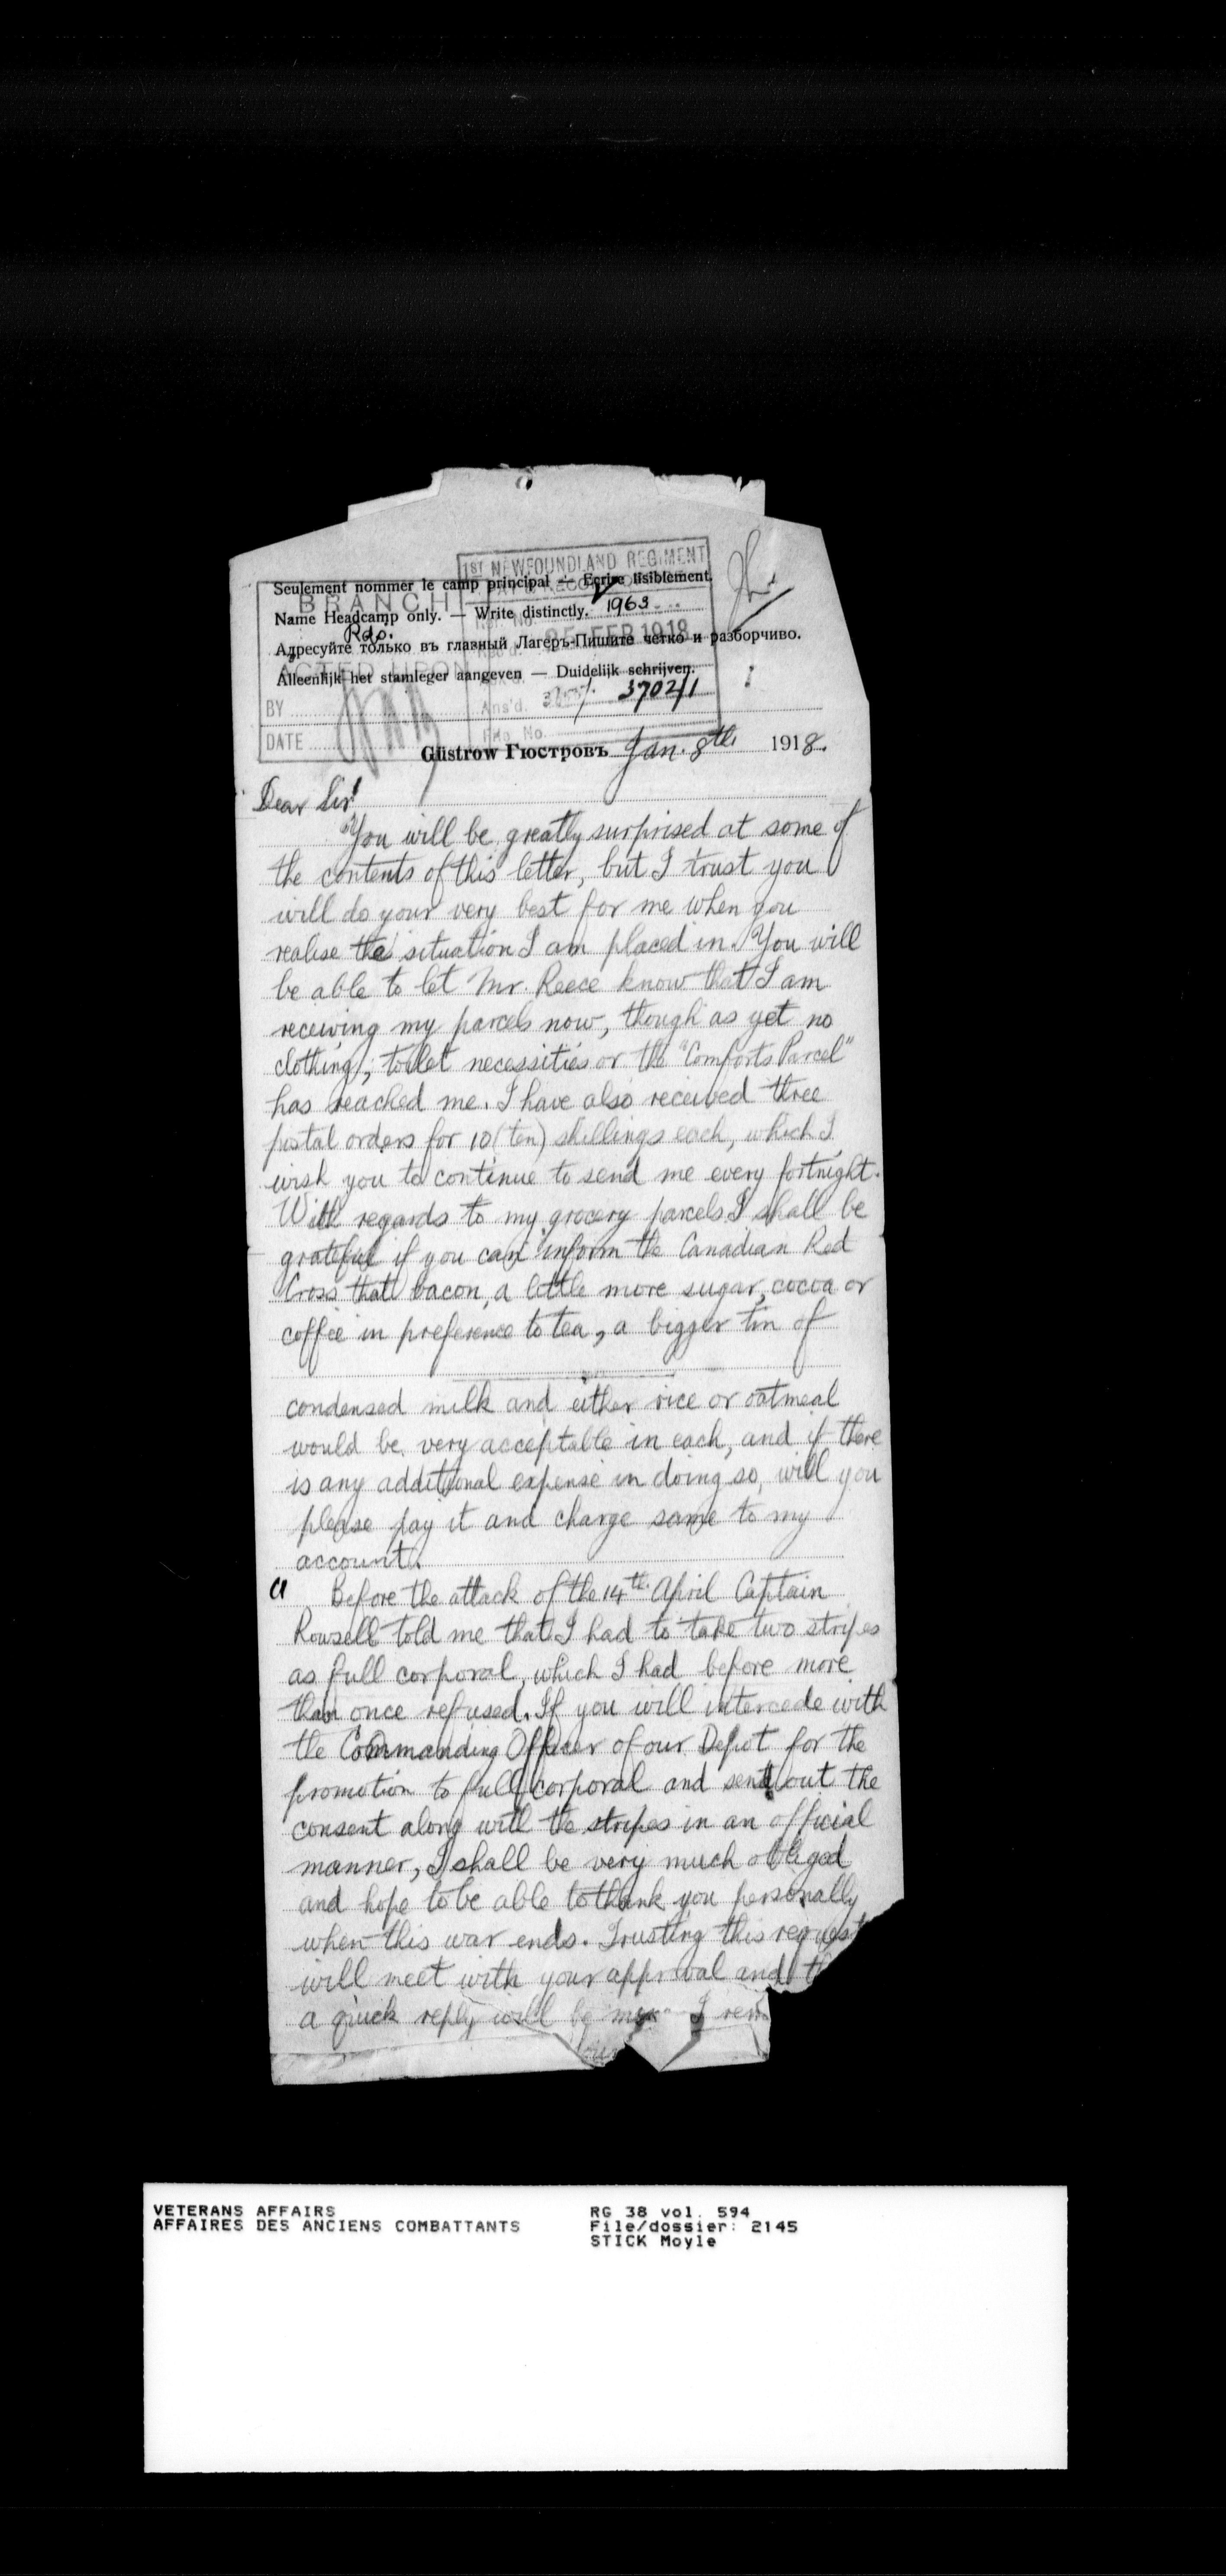 1ST NEWFOUNDLAND REGIMENT
Seulement nommer le camp principal — Ecrire lisiblement.
BRANCH
Name Headcamp only. — Write distinctly. 1963
25 FEB 1918
Адресуйте только въ главный Лагеръ-Пишите четко и разборчиво.
ACTED UPON
Alleenlijk het stamleger aangeven — Duidelijk schrijven.
BY
Ans'd. 3702/1
DATE
File No.
Güstrow Гюстровъ Jan. 8th 1918.
Dear Sir
You will be greatly surprised at some of
the contents of this letter, but I trust you
will do your very best for me when you
realise the situation I am placed in. You will
be able to let Mr. Reece know that I am
receiving my parcels now, though as yet no
clothing, toilet necessities or the "Comforts Parcel"
has reached me. I have also received three
postal orders for 10 (ten) shillings each, which I
wish you to continue to send me every fortnight.
With regards to my grocery parcels I shall be
grateful if you can inform the Canadian Red
Cross that bacon, a little more sugar, cocoa or
coffee in preference to tea, a bigger tin of
condensed milk and either rice or oatmeal
would be very acceptable in each, and if there
is any additional expense in doing so, will you
please pay it and charge same to my
account.
Before the attack of the 14th April Captain
Rowsell told me that I had to take two stripes
as full corporal, which I had before more
than once refused. If you will intercede with
the Commanding Officer of our Depot for the
promotion to full corporal and send out the
consent along with the stripes in an official
manner, I shall be very much obliged
and hope to be able to thank you personally
when this war ends. Trusting this request
will meet with your approval and
a quick reply will be I
VETERANS AFFAIRS
AFFAIRES DES ANCIENS COMBATTANTS
RG 38 vol. 594
File/dossier: 2145
STICK Moyle